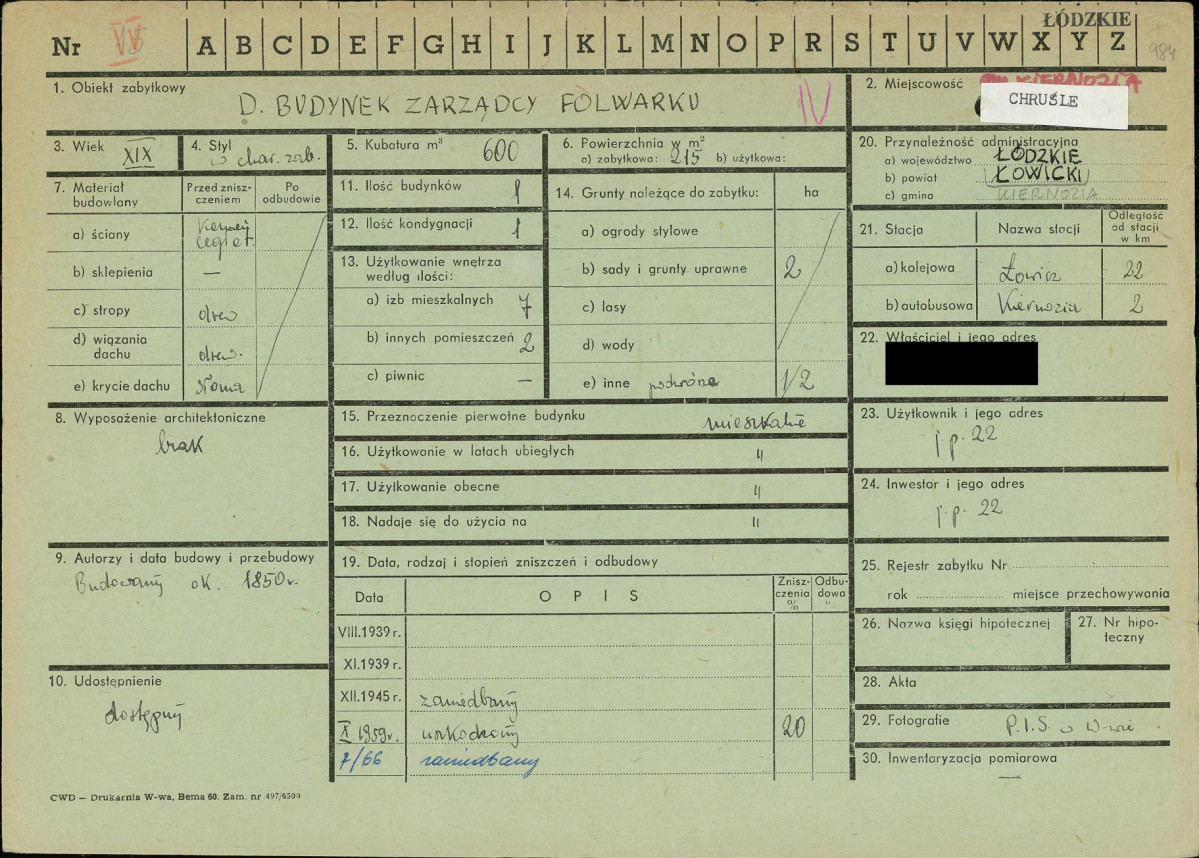 ŁÓDZKIE
Nr IV A B C D E F G H I J K L M N O P R S T U V W X Y Z
984
1. Obiekt zabytkowy
D. BUDYNEK ZARZĄDCY FOLWARKU IV
2. Miejscowość KIERNOZIA
CHRUŚLE
3. Wiek XIX
4. Styl
o char. zab.
5. Kubatura m³ 600
6. Powierzchnia w m²
a) zabytkowa: 215 b) użytkowa:
20. Przynależność administracyjna
a) województwo ŁÓDZKIE
b) powiat ŁOWICKI
c) gmina KIERNOZIA
7. Materiał budowlany
Przed zniszczeniem
Po odbudowie
a) ściany
cegła
b) sklepienia —
c) stropy drew
d) wiązania dachu drew.
e) krycie dachu słoma
11. Ilość budynków 1
12. Ilość kondygnacji 1
13. Użytkowanie wnętrza według ilości:
a) izb mieszkalnych 7
b) innych pomieszczeń 2
c) piwnic —
14. Grunty należące do zabytku: ha
a) ogrody stylowe
b) sady i grunty uprawne 2
c) lasy
d) wody
e) inne podwórze 1/2
21. Stacja Nazwa stacji Odległość od stacji w km
a) kolejowa Łowicz 22
b) autobusowa Kiernozia 2
22. Właściciel i jego adres
8. Wyposażenie architektoniczne
brak
15. Przeznaczenie pierwotne budynku mieszkalne
16. Użytkowanie w latach ubiegłych "
17. Użytkowanie obecne "
18. Nadaje się do użycia na "
23. Użytkownik i jego adres
j. p. 22
24. Inwestor i jego adres
j. p. 22
9. Autorzy i data budowy i przebudowy
Budowany ok. 1850 r.
19. Data, rodzaj i stopień zniszczeń i odbudowy
Data OPIS Zniszczenia % Odbudowa "
VIII.1939 r.
XI.1939 r.
XII.1945 r. zaniedbany
X 1959 r. uszkodzony 20
7/66 zaniedbany
25. Rejestr zabytku Nr
rok miejsce przechowywania
26. Nazwa księgi hipotecznej
27. Nr hipoteczny
10. Udostępnienie
dostępny
28. Akta
29. Fotografie P.I.S. w W-wie
30. Inwentaryzacja pomiarowa
—
CWD — Drukarnia W-wa, Bema 60. Zam. nr 497/6500